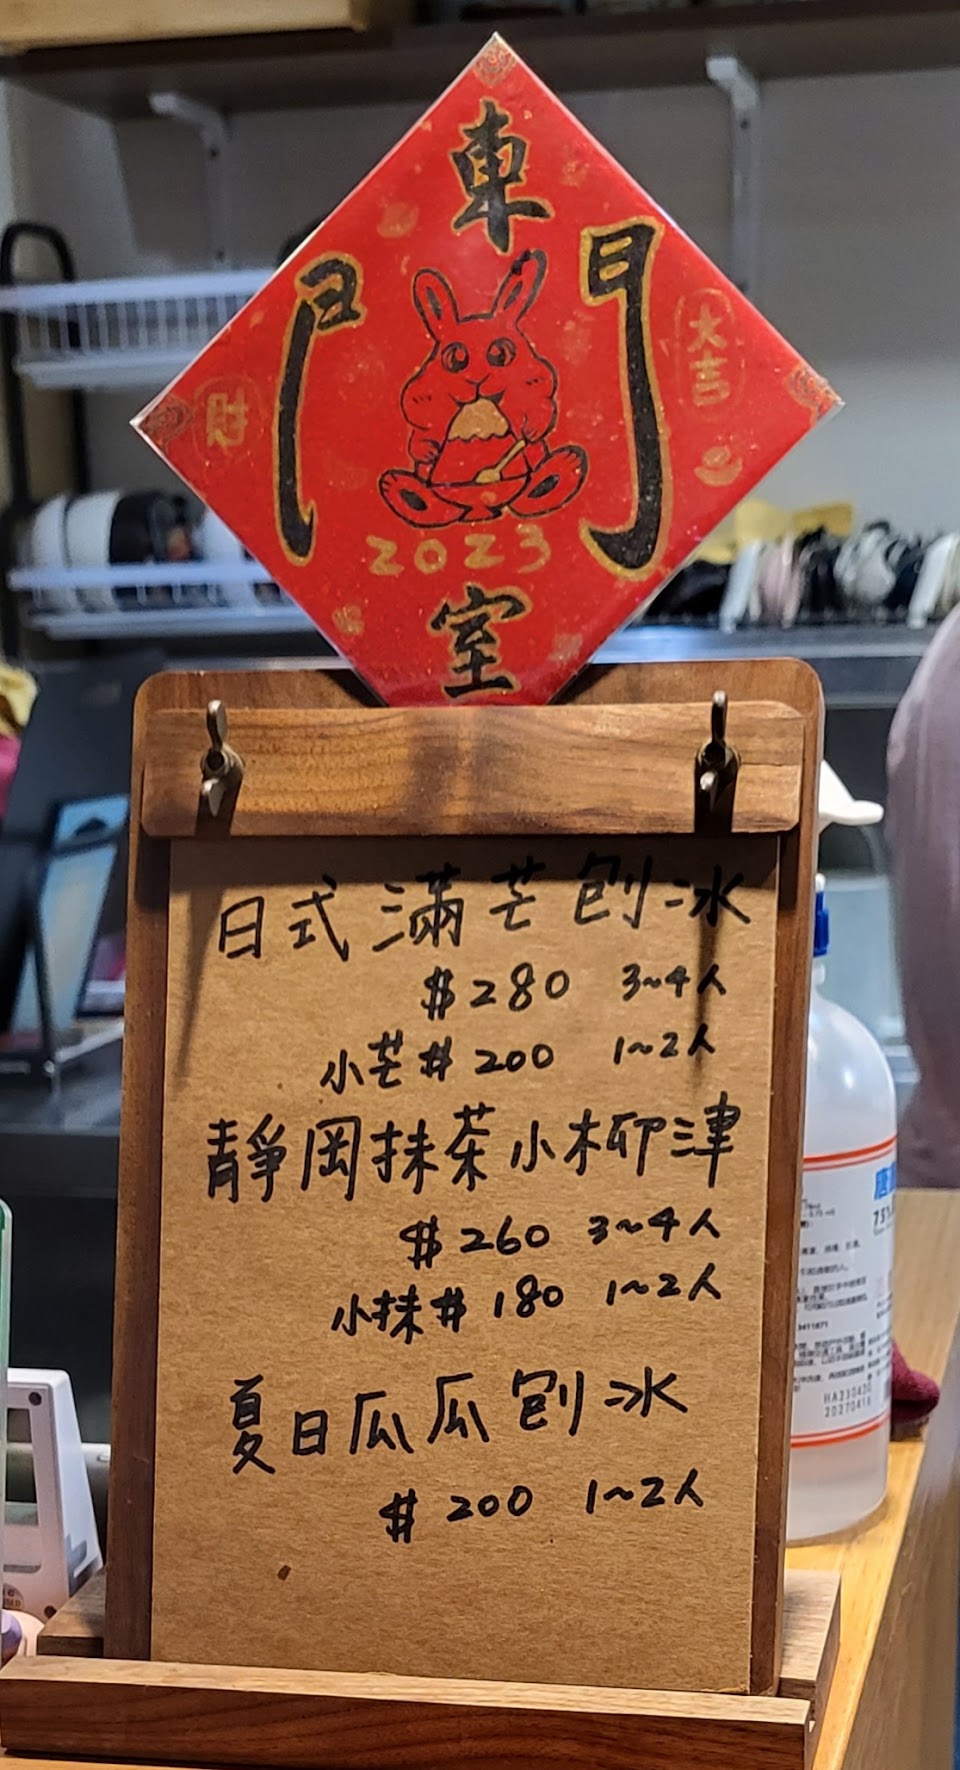 東
門
大吉
財
2023
室
日式滿芒刨冰
$280 3~4人
小芒$200 1~2人
靜岡抹茶小柳津
$260 3~4人
小抹$180 1~2人
夏日瓜瓜刨冰
$200 1~2人
75%
HA230430